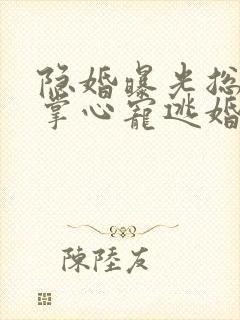 隐婚曝光总
掌心宠逃婚
陳陸友